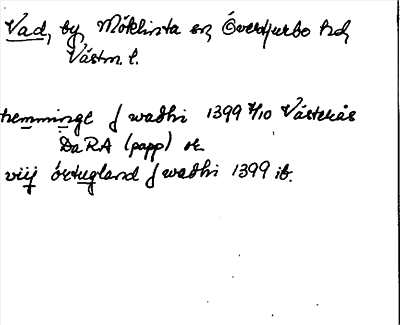 Vad, by Möklinta sn, Överdjurbo hd,
Västm. l.
hemminge j wadhi 1399 7/10 Västerås
DaRA (papp) or.
viij örtugland j wadhi 1399 ib.